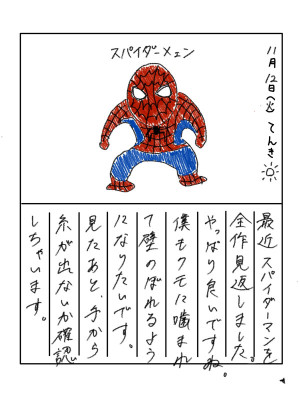 11月12日(火) てんき
スパイダーメェン
最近スパイダーマンを
全作見返しました。
やっぱり良いですね。
僕もクモに噛まれ
て壁のぼれるよう
になりたいです。
見たあと、手から
糸が出ないか確認
しちゃいます。